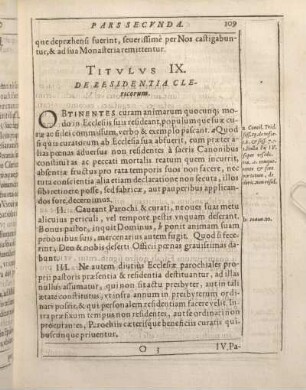 PARS SECVNDA. 109
que depræhensi fuerint, seuerissimè per Nos castigabun-
tur, & ad sua Monasteria remittentur.
TITVLVS IX.
DE RESIDENTIA CLE-
ricorum.
OBTINENTES curam animarum quocunq; mo-
do in Ecclesia sua resideant, populumque suæ cu-
ræ ac fidei commissum, verbo & exemplo pascant. Quod
si quis curatorum ab Ecclesia sua absuerit, eum præter a-
lias pœnas aduersus non residentes à sacris Canonibus
constitutas ac peccati mortalis reatum quem incurrit,
absentiæ fructus pro rata temporis suos non facere, nec
tuta conscientia alia etiam declaratione non secuta, illius
sibi retinere posse, sed fabricæ, aut pauperibus applican-
dos fore, decernimus.
II. Caueant Parochi & curati, ne oues suas metu
alicuius periculi, vel tempore pestis vnquam deserant.
Bonus pastor, inquit Dominus, b ponit animam suam
pro ouibus suis, mercenarius autem fugit. Quod si fece-
rint, Deo & nobis deserti Officii pœnas grauissimas da-
bunt.
III. Ne autem diutius Ecclesiæ parochiales pro-
prii pastoris præsentia & residentia destituantur, ad illas
nullus assumatur, qui non sit actu presbyter, aut in tali
ætate constitutus, vt infra annum in presbyterum ordi-
nari possit, & qui personalem residentiam facere velit. Infra
præfixum tempus non residentes, aut se ordinari non
procurantes, Parochiis cæterisque beneficiis curatis qui-
buscunque priuentur.
O 3 IV. Pa-
b Ioann. 10.